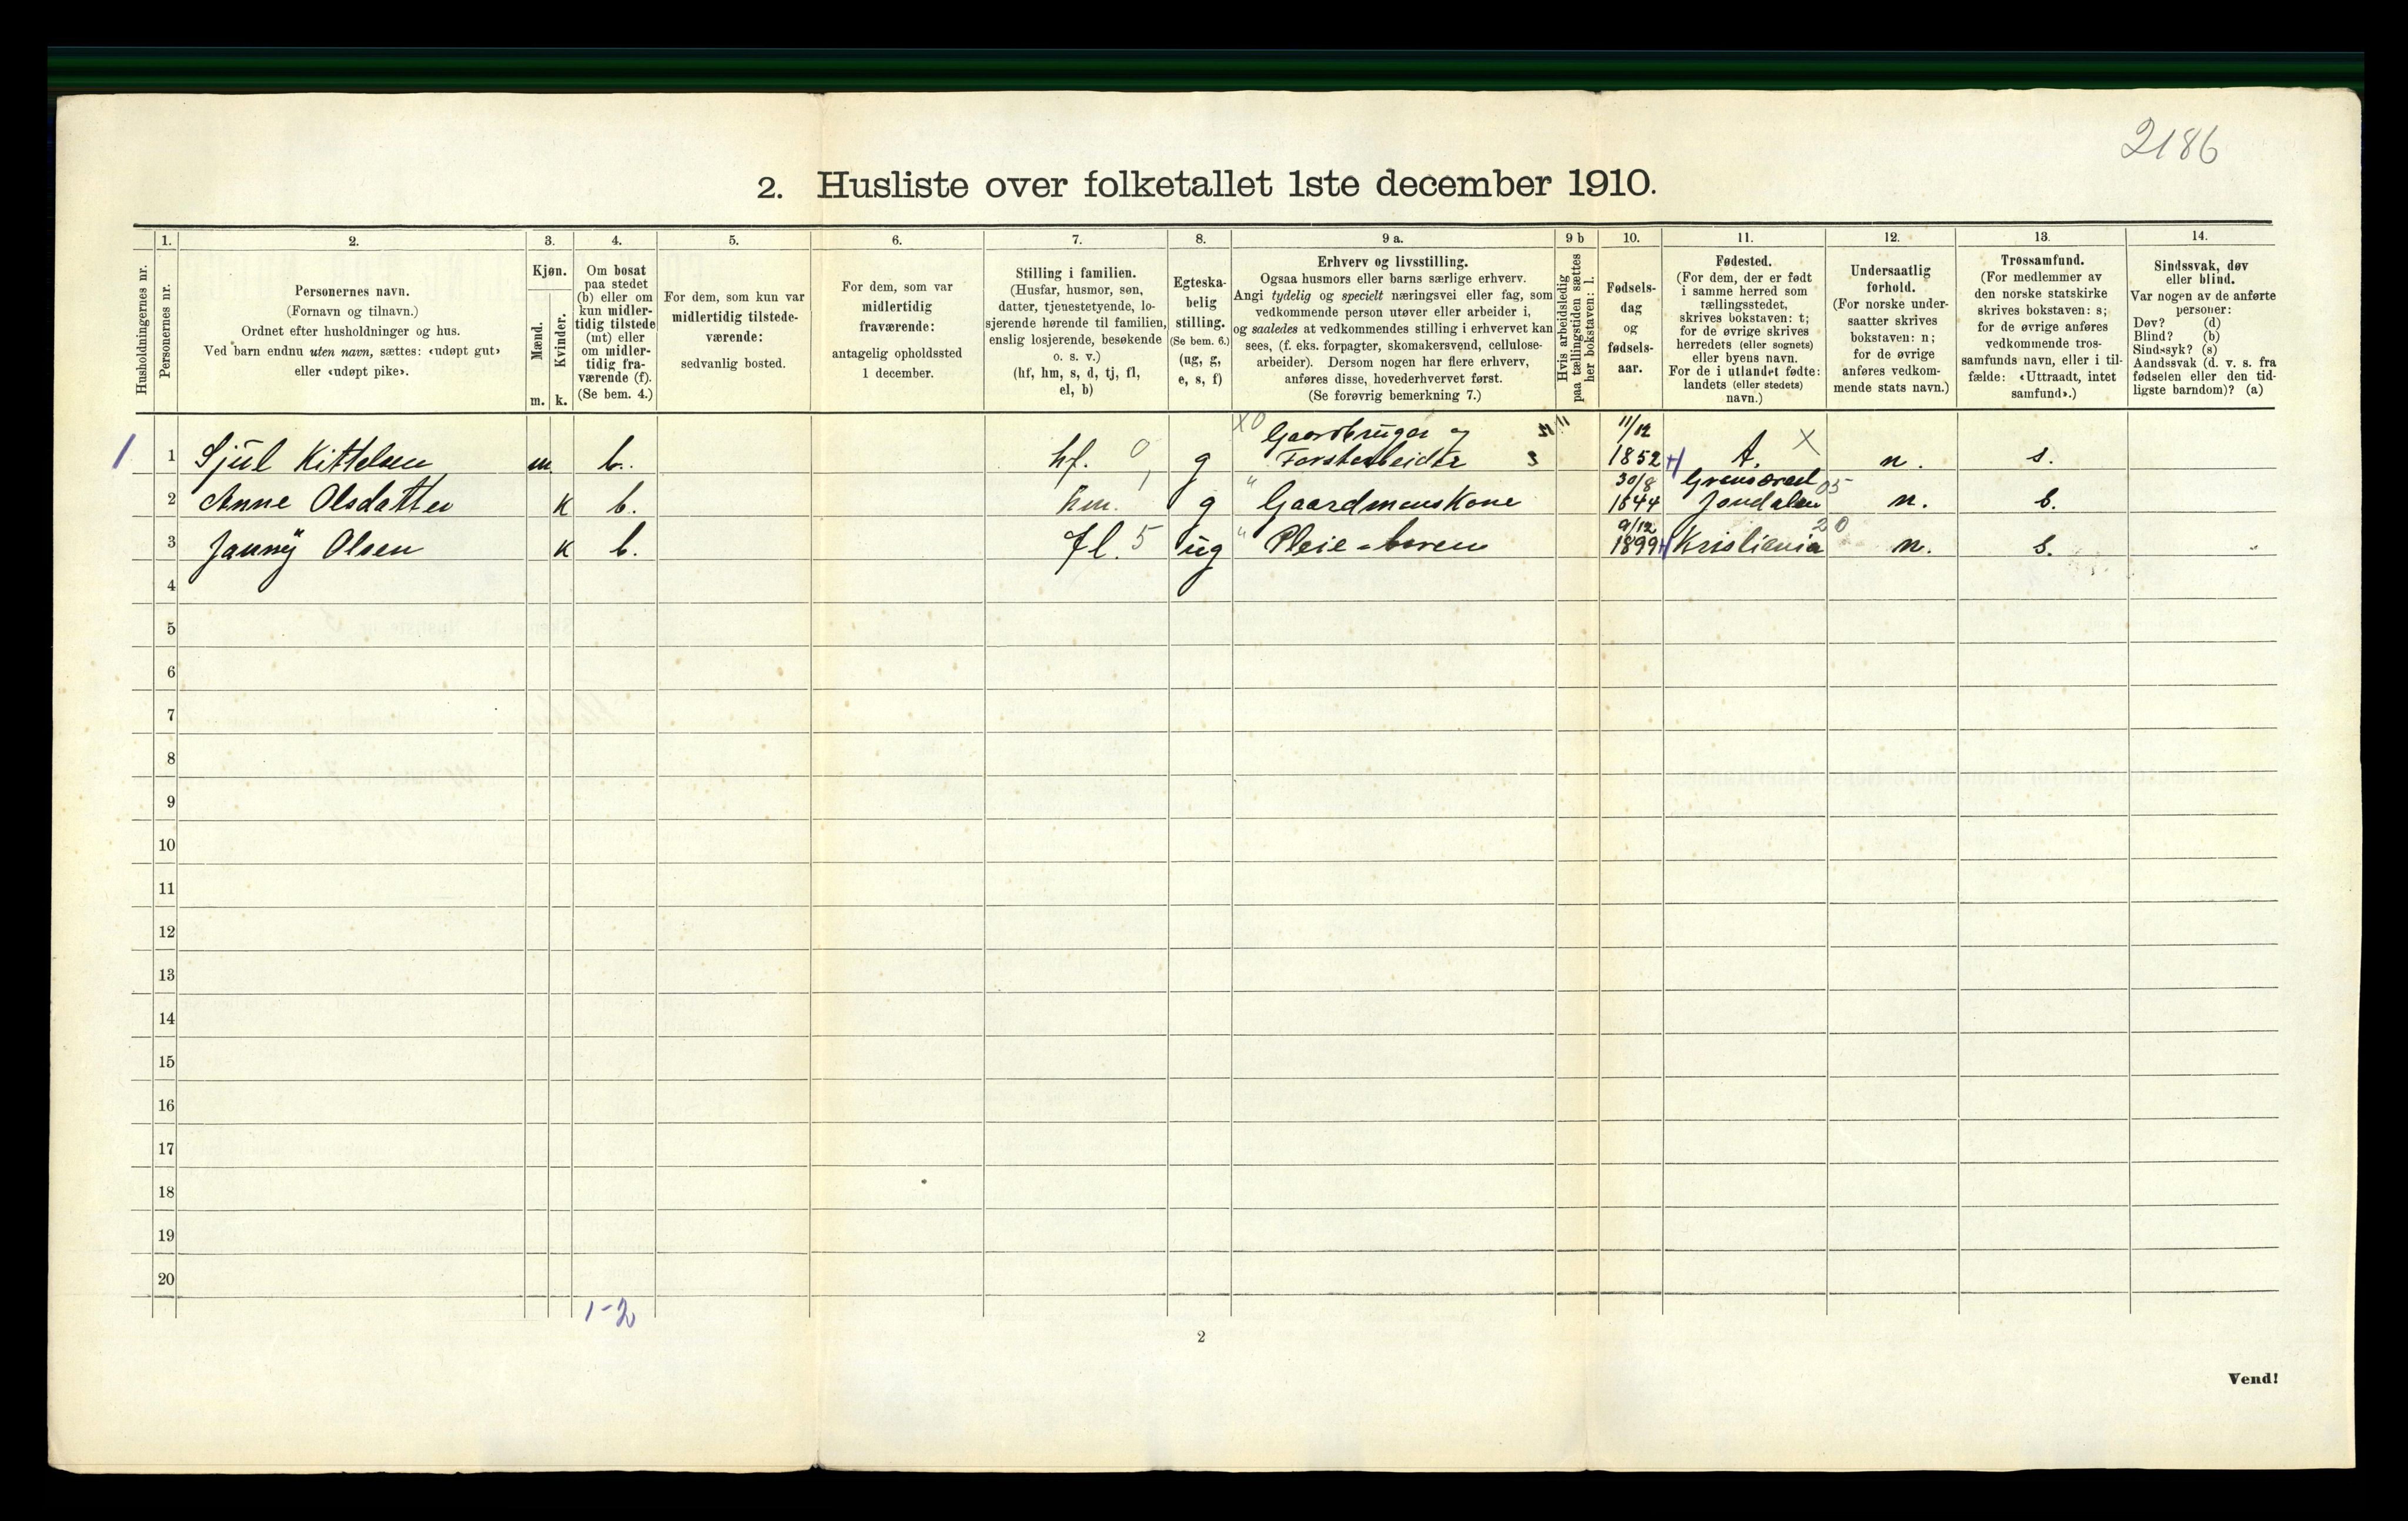 2186
2. Husliste over folketallet 1ste december 1910.
Husholdningernes nr.
1.
Personernes nr.
2.
Personernes navn.
(Fornavn og tilnavn.)
Ordnet efter husholdninger og hus.
Ved barn endnu uten navn, sættes: «udøpt gut»
eller «udøpt pike».
3.
Kjøn.
Mænd.
m.
Kvinder.
k.
4.
Om bosat
paa stedet
(b) eller om
kun midler-
tidig tilstede
(mt) eller
om midler-
tidig fra-
værende (f).
(Se bem. 4.)
5.
For dem, som kun var
midlertidig tilstede-
værende:
sedvanlig bosted.
6.
For dem, som var
midlertidig
fraværende:
antagelig opholdssted
1 december.
7.
Stilling i familien.
(Husfar, husmor, søn,
datter, tjenestetyende, lo-
sjerende hørende til familien,
enslig losjerende, besøkende
o. s. v.)
(hf, hm, s, d, tj, fl,
el, b)
8.
Egteska-
belig
stilling.
(Se bem. 6.)
(ug, g,
e, s, f)
9 a.
Erhverv og livsstilling.
Ogsaa husmors eller barns særlige erhverv.
Angi tydelig og specielt næringsvei eller fag, som
vedkommende person utøver eller arbeider i,
og saaledes at vedkommendes stilling i erhvervet kan
sees, (f. eks. forpagter, skomakersvend, cellulose-
arbeider). Dersom nogen har flere erhverv,
anføres disse, hovederhvervet først.
(Se forøvrig bemerkning 7.)
9 b
Hvis arbeidsledig
paa tællingstiden sættes
her bokstaven: l.
10.
Fødsels-
dag
og
fødsels-
aar.
11.
Fødested.
(For dem, der er født
i samme herred som
tællingsstedet,
skrives bokstaven: t;
for de øvrige skrives
herredets (eller sognets)
eller byens navn.
For de i utlandet fødte:
landets (eller stedets)
navn.)
12.
Undersaatlig
forhold.
(For norske under-
saatter skrives
bokstaven: n;
for de øvrige
anføres vedkom-
mende stats navn.)
13.
Trossamfund.
(For medlemmer av
den norske statskirke
skrives bokstaven: s;
for de øvrige anføres
vedkommende tros-
samfunds navn, eller i til-
fælde: «Uttraadt, intet
samfund».)
14.
Sindssvak, døv
eller blind.
Var nogen av de anførte
personer:
Døv? (d)
Blind? (b)
Sindssyk? (s)
Aandssvak (d. v. s. fra
fødselen eller den tid-
ligste barndom)? (a)
1 1 Sjül Kittelsen m b. hf. 0 g X0 Gaardbruger og Forstarbeider 11/12 1852 t. X n. s.
2 Anne Olsdatter k b. hm. 1 g " Gaardmanskone 30/8 1844 Jondalen 05 n. s.
3 Jannÿ Olsen k b. fl. 5 üg " Pleie-baren 9/12 1899 Kristiania 20 n. s.
4
5
6
7
8
9
10
11
12
13
14
15
16
17
18
19
20
1-2
2
Vend!